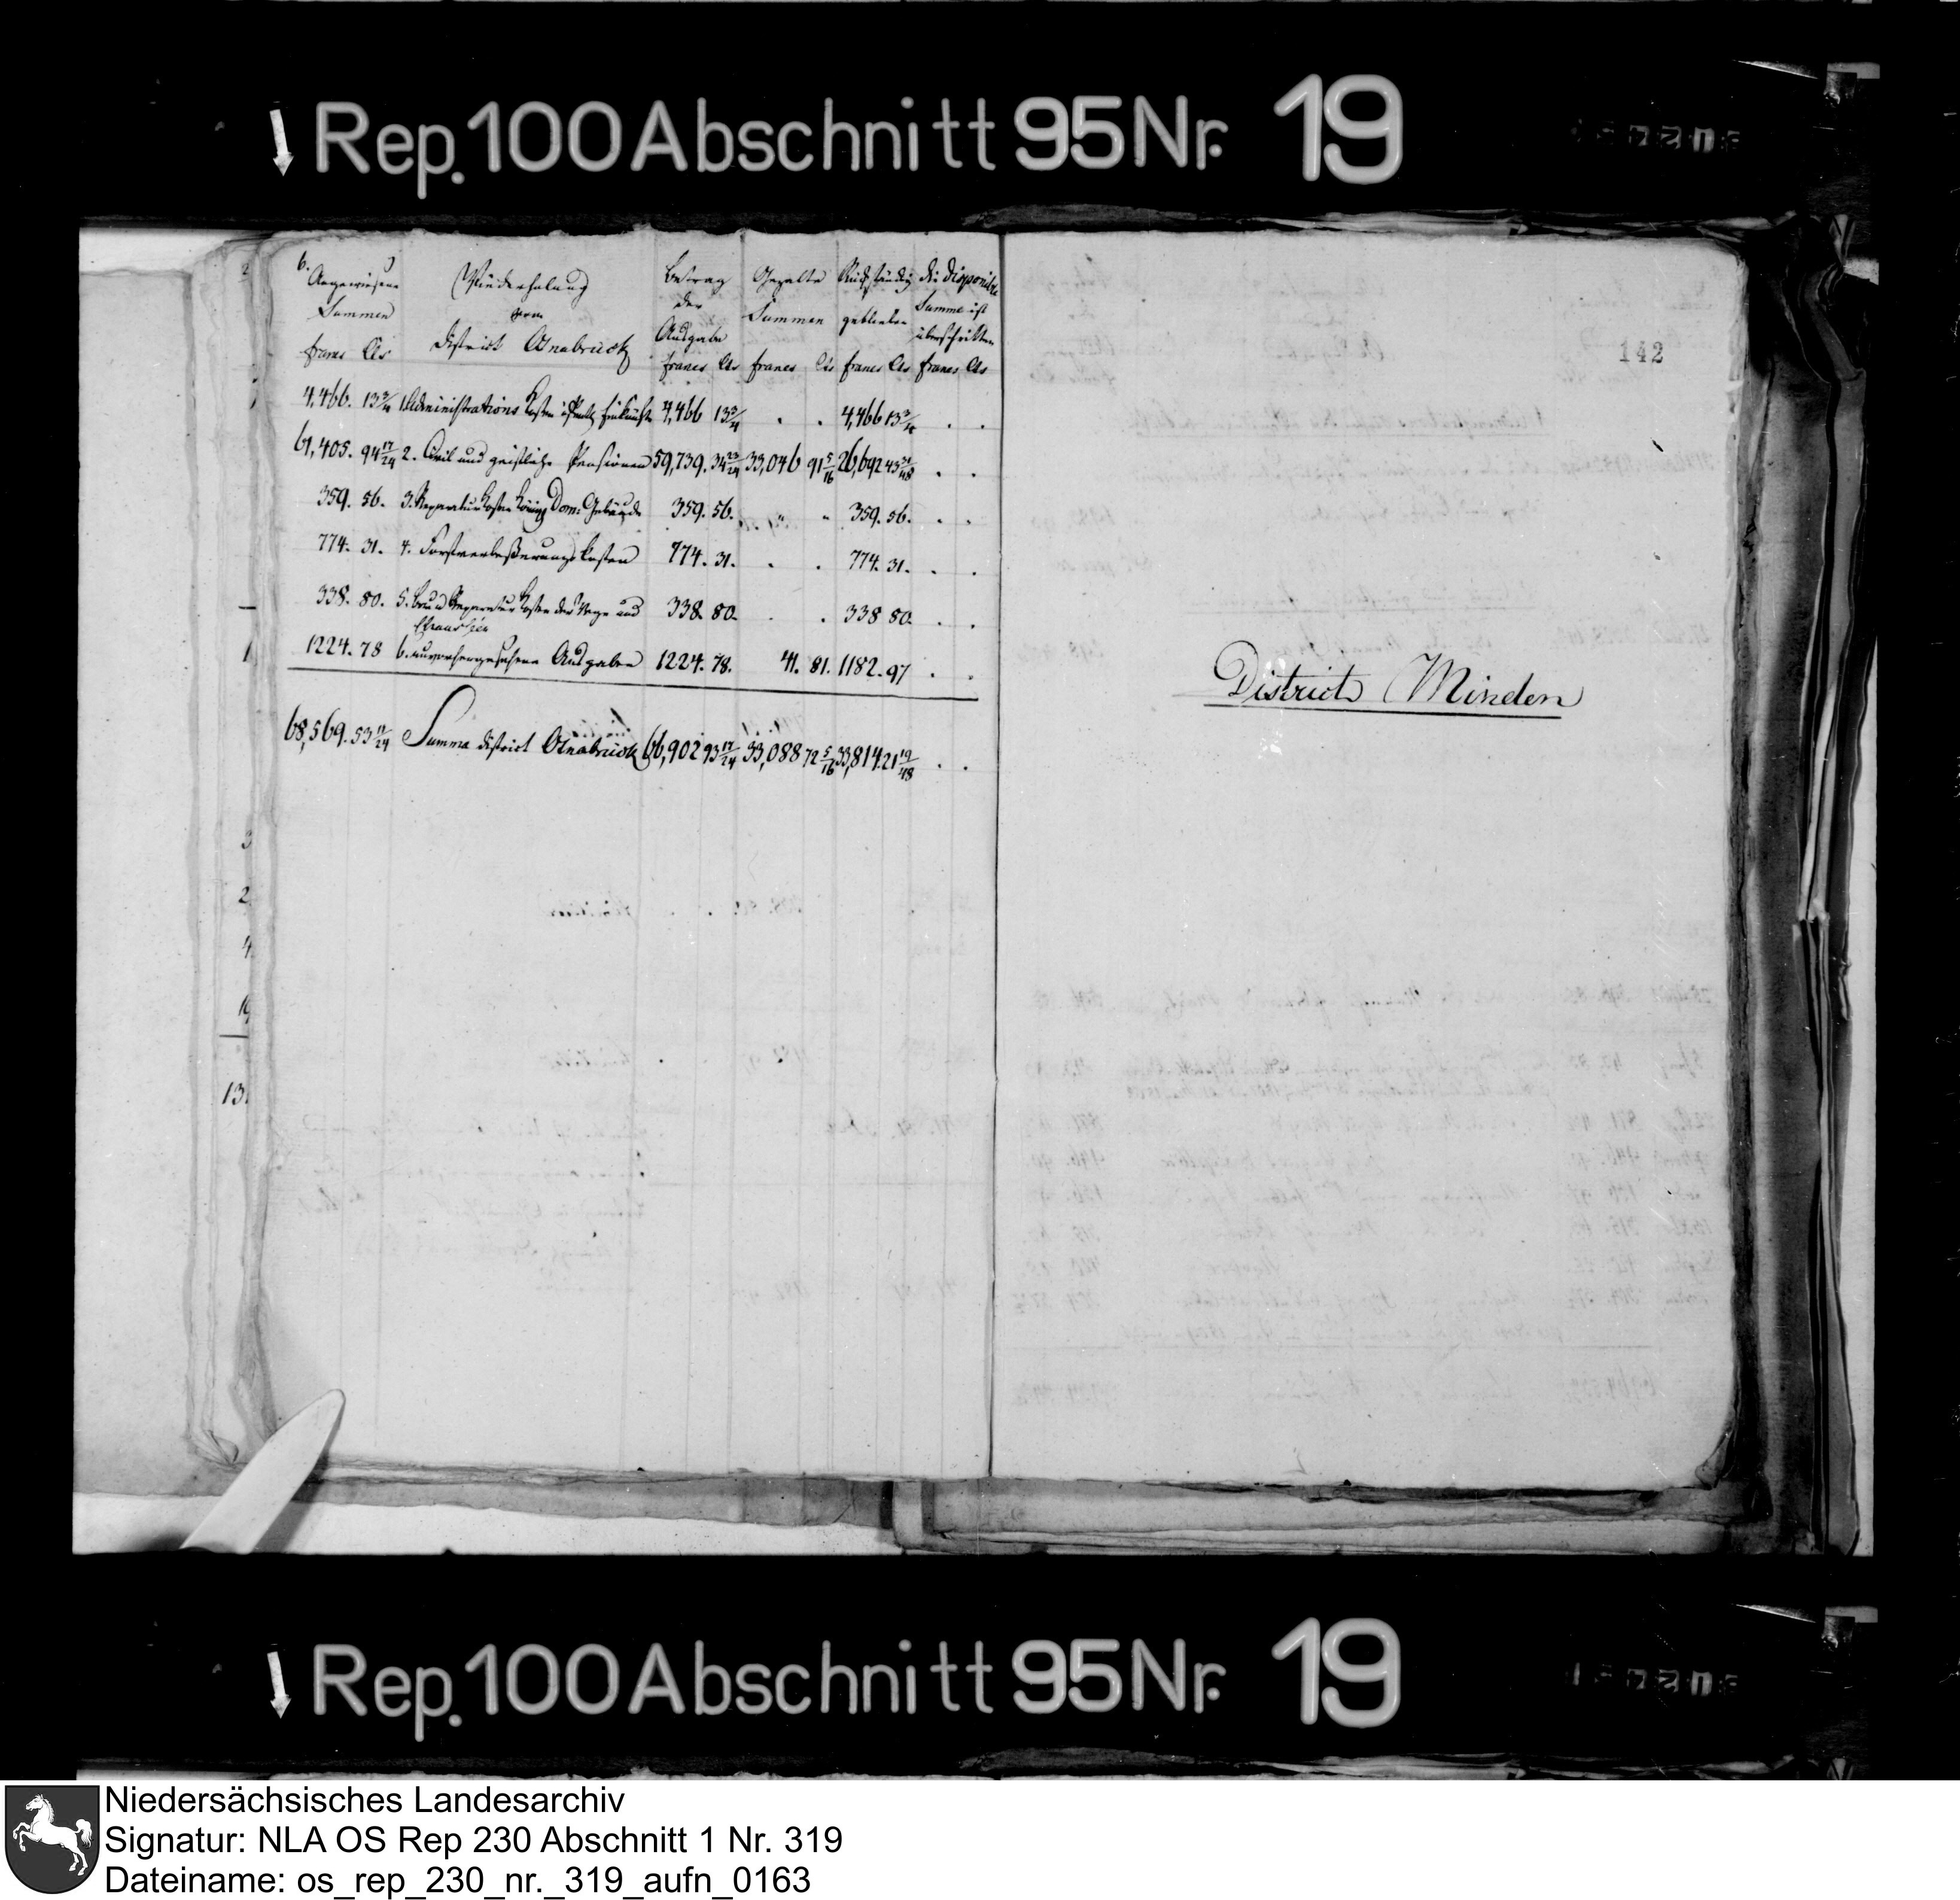 Rep. 100 Abschnitt 95 Nr. 19
6.
Angewiesene Summen francs Cts
Wiederholung vom District Osnabrück
Betrag der Ausgabe francs Cts
Gezalte Summen francs Cts
Rückständig geblieben francs Cts
die disponible Summe ist überschritten francs Cts
4,466. 13 3/4 1. Administrations Kosten öffentl. Einkünfte 4,466 13 3/4 . . 4,466 13 3/4 . .
61,405. 94 17/24 2. Civil und geistliche Pensionen 59,739. 34 23/24 33,046 91 5/16 26,692 43 31/48 . .
359. 56. 3. Reparatur Kosten Königl Dom: Gebäude 359. 56. " " 359. 56. . .
774. 31. 4. Forstverbeßerungs Kosten 774. 31. . . 774. 31. . .
338. 80. 5. Bau u Reparatur Kosten der Wege und Chausséen 338. 80. . . 338 80. . .
1224. 78 6. unvorhergesehene Ausgaben 1224. 78. 41. 81. 1182. 97 . .
68,569. 53 11/24 Summa district Osnabrück 66,902 93 17/24 33,088 72 5/16 33,814. 21 19/48 . .
142
District Minden
Rep. 100 Abschnitt 95 Nr. 19
Niedersächsisches Landesarchiv
Signatur: NLA OS Rep 230 Abschnitt 1 Nr. 319
Dateiname: os_rep_230_nr._319_aufn_0163